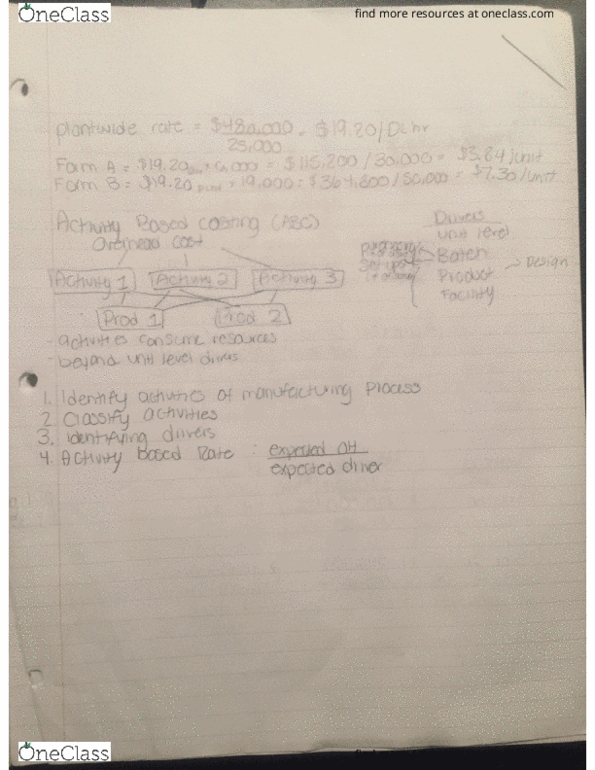 OneClass
find more resources at oneclass.com
plantwide rate = $480,000 = $19.20/DL hr
25,000
Form A = $19.20 × 6,000 = $115,200 / 30,000 = $3.84/unit
Form B = $19.20 = 19,000 = $364,800 / 50,000 = $7.30/unit
Activity Based Costing (ABC)
Overhead Cost
Activity 1 Activity 2 Activity 3
Prod 1 Prod 2
Drivers
unit level
Set ups
Batch
Product
Facility
Design
- activities consume resources
- beyond unit level drives
1. Identify activities of manufacturing Process
2. Classify activities
3. Identifying drivers
4. Activity Based Rate : expected OH
expected driver
OneClass